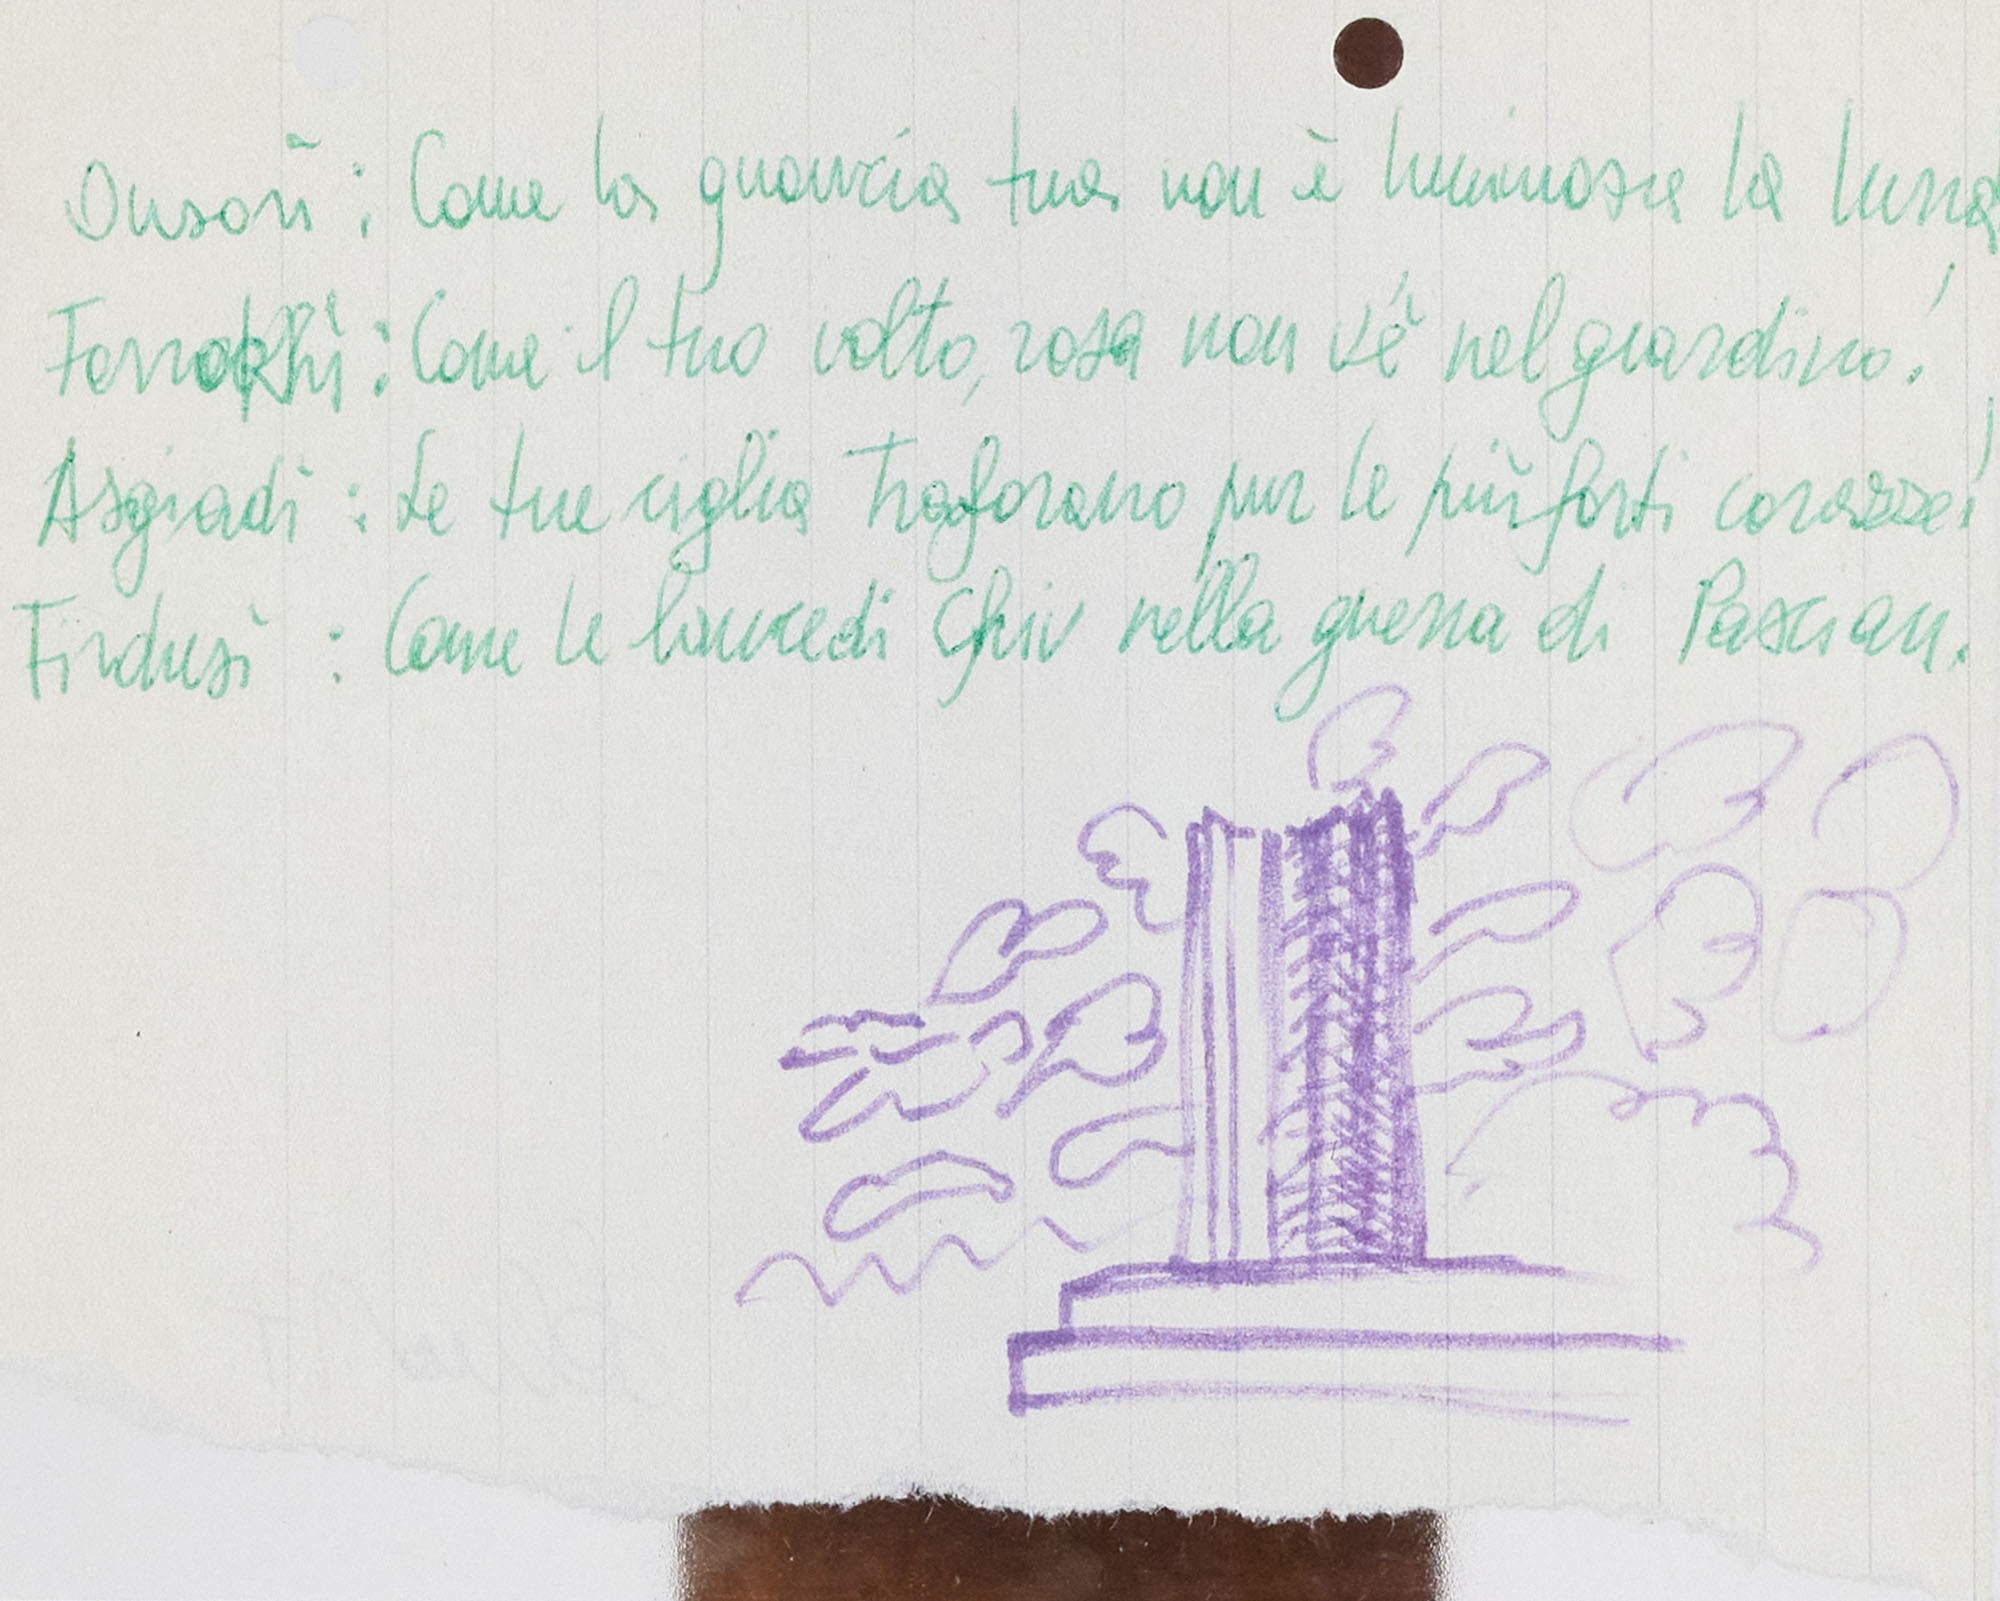 Onsorì: Come la guancia tua non è luminosa la luna
Farrokhì: Come il tuo volto, rosa non v'è nel giardino!
Asgiadì: Le tue ciglia traforano pur le più forti corazze!
Firdusì: Come le lance di Ghiv nella guerra di Pascian.